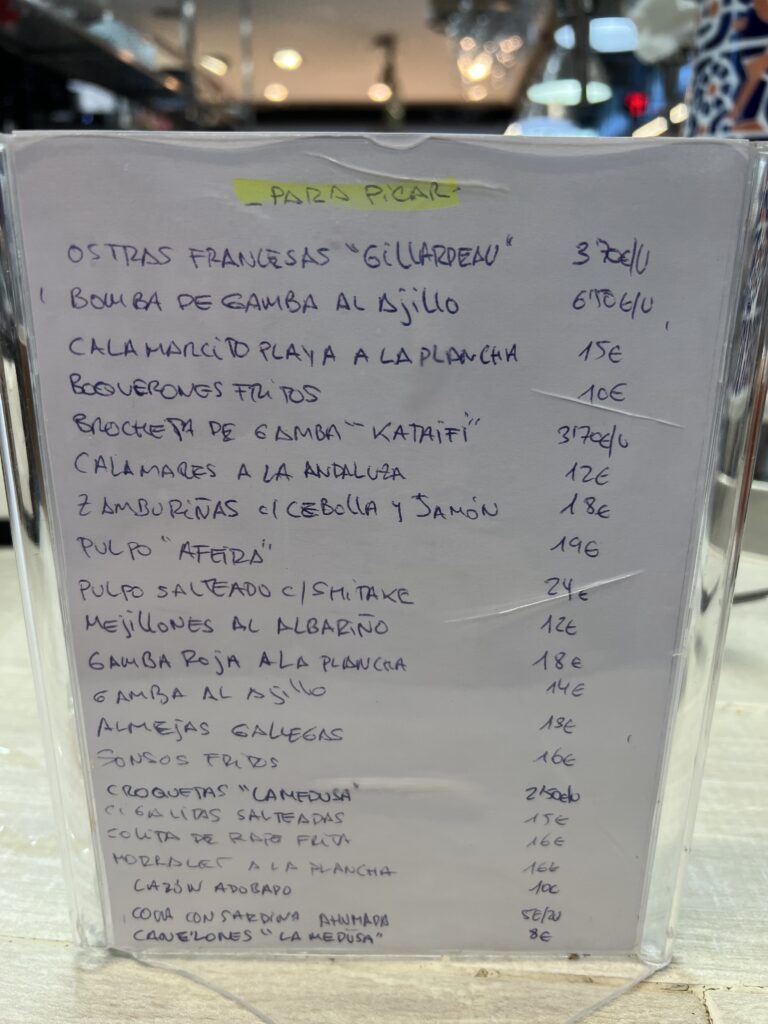 - PARA PICAR -
OSTRAS FRANCESAS "GILLARDEAU" 3'70€/U
BOMBA DE GAMBA AL AJILLO 6'50€/U
CALAMARCITO PLAYA A LA PLANCHA 15€
BOQUERONES FRITOS 10€
BROCHETA DE GAMBA "KATAIFI" 3'70€/U
CALAMARES A LA ANDALUZA 12€
ZAMBURIÑAS c/ CEBOLLA Y JAMÓN 18€
PULPO "AFEIRA" 19€
PULPO SALTEADO c/ SHITAKE 24€
MEJILLONES AL ALBARIÑO 12€
GAMBA ROJA A LA PLANCHA 18€
GAMBA AL AJILLO 14€
ALMEJAS GALLEGAS 18€
SONSOS FRITOS 16€
CROQUETAS "LA MEDUSA" 2'50€/U
CIGALITAS SALTEADAS 15€
COLITA DE RAPE FRITA 16€
MORRALET A LA PLANCHA 16€
CAZÓN ADOBADO 10€
COCA CON SARDINA AHUMADA 5€/2U
CANELONES "LA MEDUSA" 8€